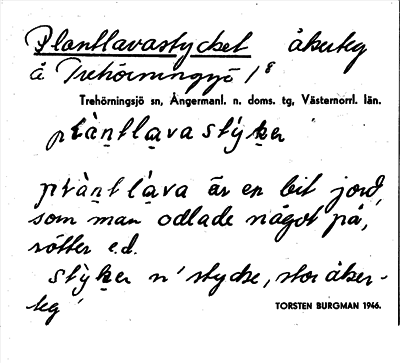 Plantlavastycket åkerteg
å Trehörningsjö 1⁸
Trehörningsjö sn, Ångermanl. n. doms. tg, Västernorrl. län.
plàntlavastýker
plàntláva är en bit jord,
som man odlade något på,
rötter e.d.
stýker n' stycke, stor åker-
teg'
TORSTEN BURGMAN 1946.